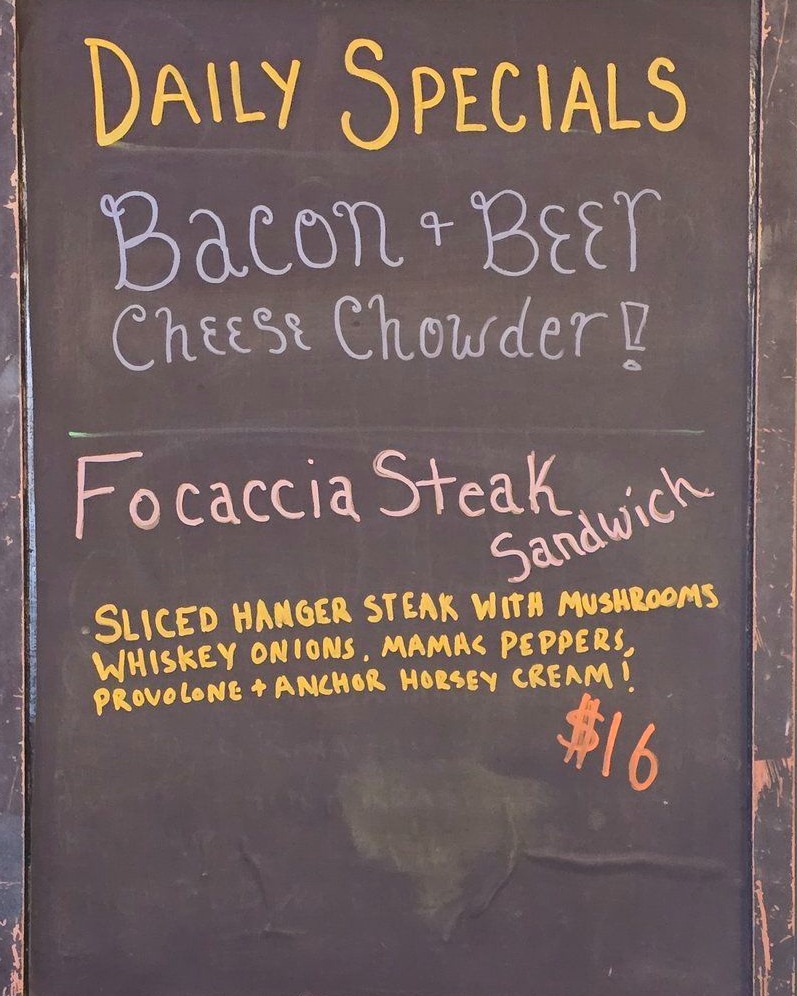 DAILY SPECIALS
Bacon + Beer
Cheese Chowder!
Focaccia Steak
Sandwich
SLICED HANGER STEAK WITH MUSHROOMS
WHISKEY ONIONS, MAMAS PEPPERS,
PROVOLONE + ANCHOR HORSEY CREAM!
$16